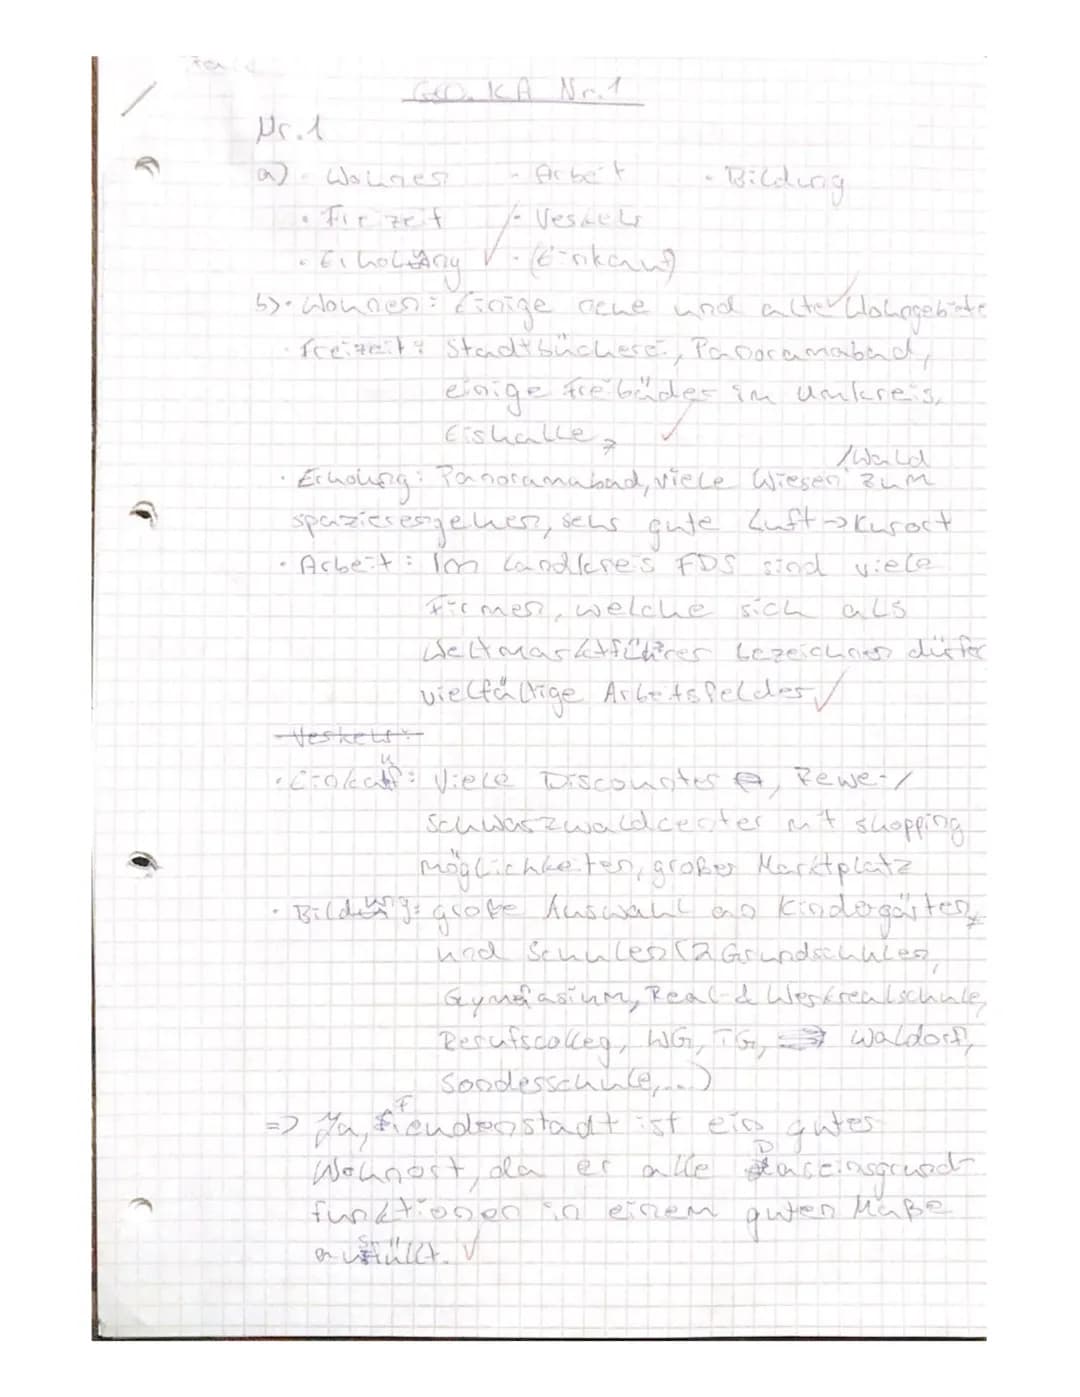 Geo. KA Nr.1
Nr.1
a) · Wohnen - Arbeit · Bildung
· Freizeit - Verkehr
· Erholung · (Einkauf)
b) · Wohnen: Einige neue und alte Wohngebiete
· Freizeit: Stadtbücherei, Panoramabad,
einige Freibäder im Umkreis,
Eishalle,
/Wald
· Erholung: Panoramabad, viele Wiesen zum
spazierengehen, sehr gute Luft → Kurort
· Arbeit: Im Landkreis FDS sind viele
Firmen, welche sich als
Weltmarktführer bezeichnen dürfen
vielfältige Arbeitsfelder
Verkehr:
· Einkauf: Viele Discounter, Rewe-/
Schwarzwaldcenter mit shopping
möglichkeiten, großer Marktplatz
· Bildung: große Auswahl an Kindergärten
und Schulen (2 Grundschulen,
Gymnasium, Real-& Werkrealschule,
Berufscolleg, WG, TG, Waldorf,
Sonderschule,...)
=> Ja, Freudenstadt ist ein gutes
Wohnort, da er alle Daseinsgrund-
funktionen in einem guten Maße